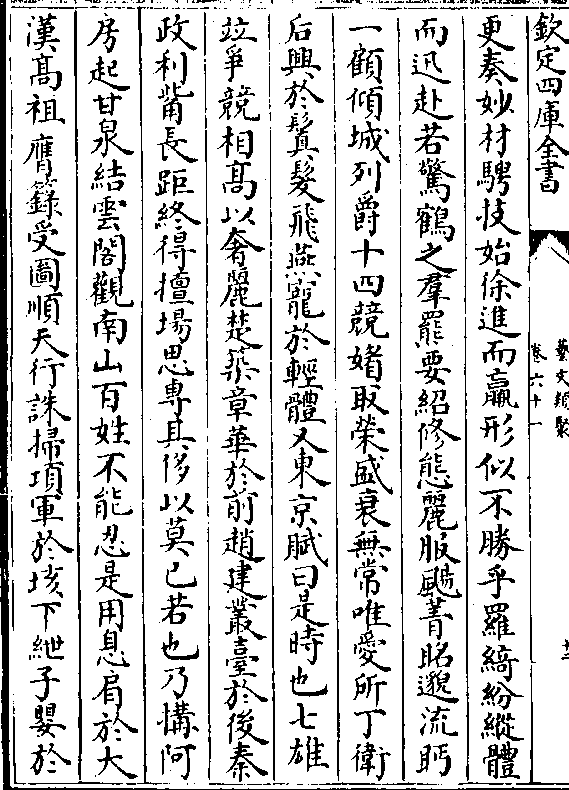 欽定四庫全書
藝文類聚
卷六十一
十三
更奏妙材騁技始徐進而羸形似不勝乎羅綺紛縱體
而迅赴若驚鶴之羣罷要紹修態麗服颺菁眳邈流眄
一顧傾城列爵十四競媚取榮盛衰無常唯愛所丁衛
后興於鬒髮飛燕寵於輕體又東京賦曰是時也七雄
竝爭競相髙以奢麗楚築章華於前趙建叢臺於後秦
政利觜長距終得擅場思專其侈以莫已若也乃搆阿
房起甘泉結雲閣觀南山百姓不能忍是用息肩於大
漢髙祖膺籙受圖順天行誅掃項軍於垓下紲子嬰於